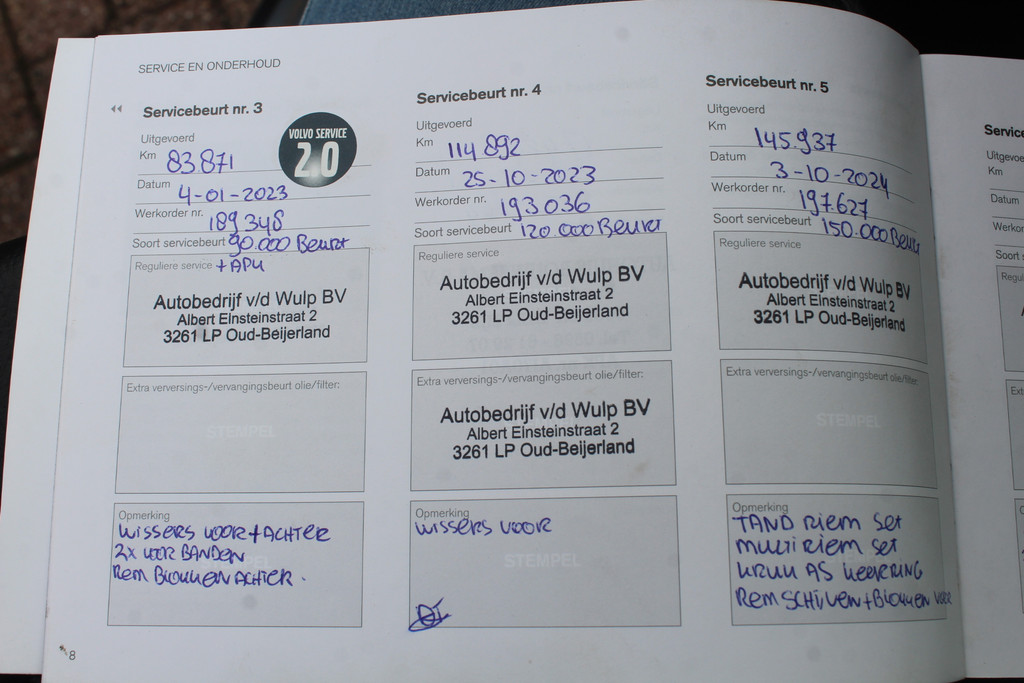 SERVICE EN ONDERHOUD
Servicebeurt nr. 3
Uitgevoerd
Km 83.871
Datum 4-01-2023
Werkorder nr. 189348
Soort servicebeurt 90.000 Beurt
Reguliere service + APK
Autobedrijf v/d Wulp BV
Albert Einsteinstraat 2
3261 LP Oud-Beijerland
Extra verversings-/vervangingsbeurt olie/filter:
STEMPEL
Opmerking
WISSERS VOOR + ACHTER
2x VOOR BANDEN
Rem BLOKKEN ACHTER.
VOLVO SERVICE
2.0
Servicebeurt nr. 4
Uitgevoerd
Km 114 892
Datum 25-10-2023
Werkorder nr. 193036
Soort servicebeurt 120 000 Beurt
Reguliere service
Autobedrijf v/d Wulp BV
Albert Einsteinstraat 2
3261 LP Oud-Beijerland
Extra verversings-/vervangingsbeurt olie/filter:
Autobedrijf v/d Wulp BV
Albert Einsteinstraat 2
3261 LP Oud-Beijerland
Opmerking
WISSERS VOOR
STEMPEL
Servicebeurt nr. 5
Uitgevoerd
Km 145.937
Datum 3-10-2024
Werkorder nr. 197.627
Soort servicebeurt 150.000 Beurt
Reguliere service
Autobedrijf v/d Wulp BV
Albert Einsteinstraat 2
3261 LP Oud-Beijerland
Extra verversings-/vervangingsbeurt olie/filter:
STEMPEL
Opmerking
TAND Riem Set
multi riem set
KRUK AS KEERRING
Rem SCHIJVEN + BLOKKEN VOOR
8
Service
Uitgevoe
Km
Datum
Werkor
Soort
Regu
Ext